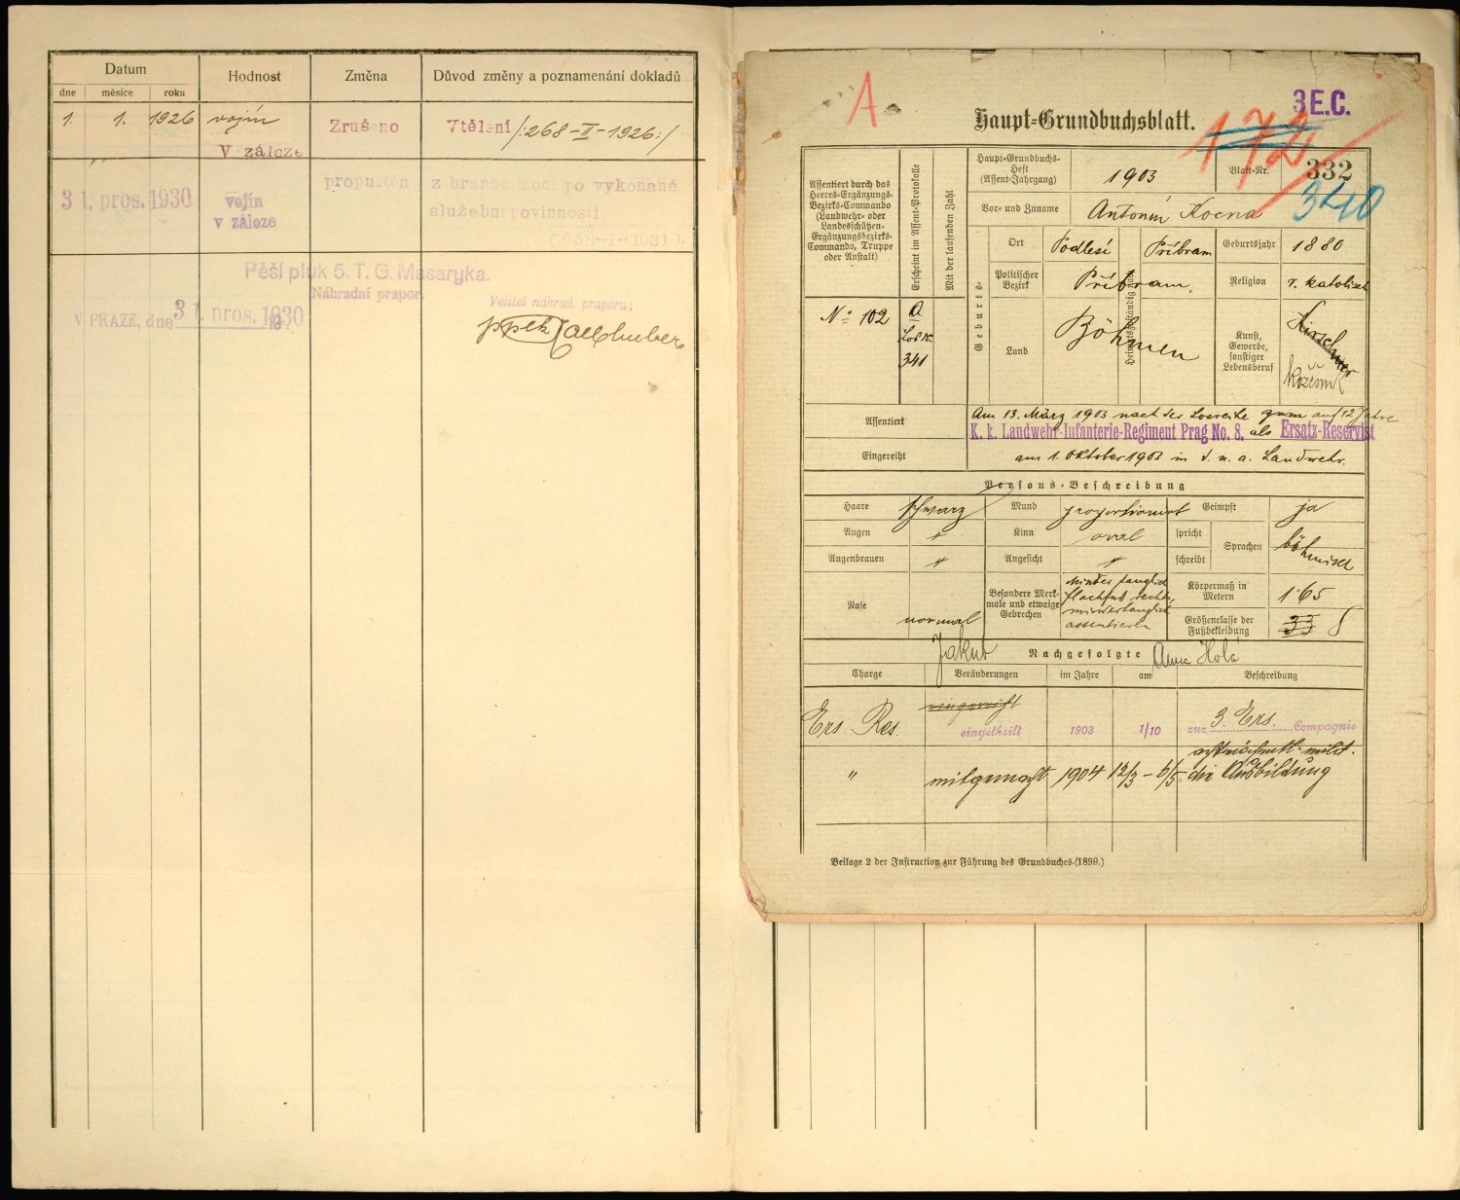 Datum
Hodnost
Změna
Důvod změny a poznamenání dokladů
dne
měsíce
roku
1. 1. 1926 vojín Zrušeno Vtělení /:268-II-1926:/
V záloze
31. pros. 1930 vojín propuštěn z branné moci po vykonané
v záloze služební povinnosti
Pěší pluk 5. T. G. Masaryka.
Náhradní prapor.
V PRAZE, dne 31. pros. 1930
Velitel náhrad. praporu:
A
3 E.C.
Haupt-Grundbuchsblatt.
172
Assentiert durch das
Heeres-Ergänzungs-
Bezirks-Commando
(Landwehr- oder
Landesschützen-
Ergänzungsbezirks-
Commando, Truppe
oder Anstalt)
Erscheint im Assent-Protokolle
Mit der laufenden Zahl
Haupt-Grundbuchs-
Heft
(Assent-Jahrgang)
1903
Blatt-Nr.
332
340
Vor- und Zuname
Antonín Kocna
Geburts-
Ort
Podlesí
Příbram
Geburtsjahr
1880
Politischer
Bezirk
Příbram.
Religion
r. katolisch
Land
Böhmen
Kunst,
Gewerbe,
sonstiger
Lebensberuf
Kirschner
kožešník
No 102
a
Los Nr.
341
Assentiert
Am 13. März 1903 nach der Losreihe zum auf 12 Jahre
K. k. Landwehr-Infanterie-Regiment Prag No. 8. als Ersatz-Reservist
Eingereiht
am 1. Oktober 1903 in d. n. a. Landwehr.
Persons-Beschreibung
Haare schwarz Mund proportionirt Geimpft ja
Augen " Kinn oval spricht Sprachen böhmisch
Augenbrauen " Angesicht " schreibt
Nase normal
Besondere Merk-
male und etwaige
Gebrechen
Minder tauglich
Plachfuß rechts,
mindertauglich
assentieren
Körpermaß in
Metern
1·65
Größenclasse der
Fußbekleidung
33 8
Jakub Nachgefolgte Anna Holá
Charge Veränderungen im Jahre am Beschreibung
Ers. Res. eingetheilt 1903 1/10 zur 3. Ers. Compagnie
" mitgemacht 1904 12/3 - 6/5 die Ausbildung
Beilage 2 der Instruction zur Führung des Grundbuches (1899.)